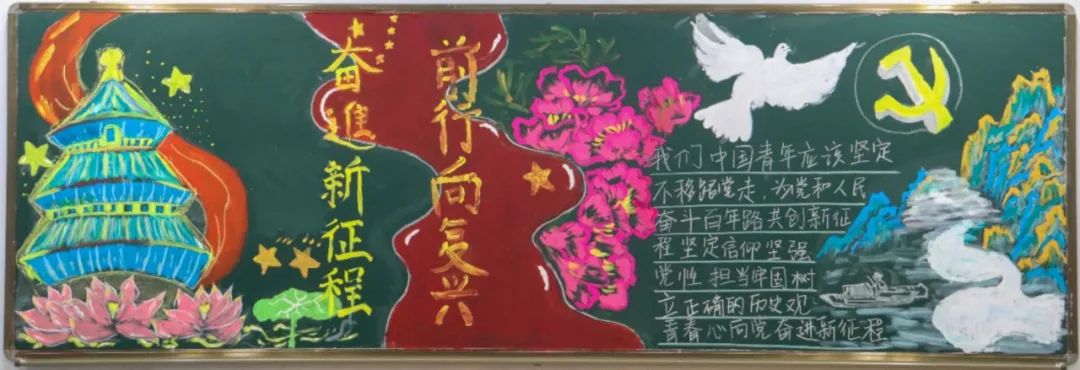 奋進新征程
前行向复兴
我们中国青年应该坚定
不移跟党走，为党和人民
奋斗百年路共创新征
程坚定信仰坚强
党性担当牢固树
立正确的历史观
青春心向党奋进新征程